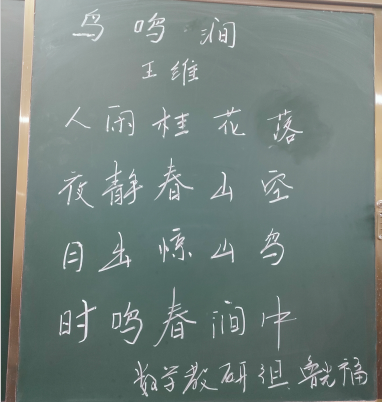 鸟鸣涧
王维
人闲桂花落
夜静春山空
月出惊山鸟
时鸣春涧中
数学教研组 鲁光福